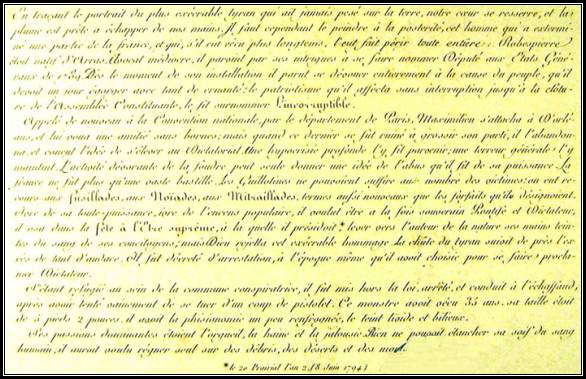 En traçant le portrait du plus exécrable tyran qui ait jamais pesé sur la terre, notre cœur se resserre, et la
plume est prête a échapper de nos mains. Il faut cependant le peindre à la postérité, cet homme qui a extermi-
né une partie de la france, et qui, s'il eut vécu plus longtems, l'eut fait périr toute entière. Robespierre
étoit natif d'Arras. Avocat médiocre, il parvint par ses intrigues à se faire nommer Député aux Etats Géné-
raux de 1789. Dès le moment de son installation il parut se dévouer entierement à la cause du peuple, qu'il
devoit un jour égorger avec tant de cruauté: le patriotisme qu'il affecta sans interruption jusqu'à la clôtu-
re de l'Assemblée Constituante, le fit surnommer l'incorruptible.
Appelé de nouveau à la Convention nationale, par le département de Paris, Maximilien s'attacha à D'orlé-
ans, et lui voua une amitié sans bornes; mais quand ce dernier se fut ruiné à grossir son parti, il l'abandon-
na, et conçut l'idée de s'élever au Dictatoriat. Une hypocrisie profonde l'y fit parvenir; une terreur générale l'y
maintint. L'activité dévorante de la foudre peut seule donner une idée de l'abus qu'il fit de sa puissance. La
france ne fut plus qu'une vaste bastille. Les Guillotines ne pouvoient suffire aux nombre des victimes: on eut re-
cours aux fusillades, aux Noïades, aux Mitraillades, termes aussi nouveaux que les forfaits qu'ils désignoient.
Ivre de sa toute-puissance, ivre de l'encens populaire, il voulut être a la fois souverain Pontife et Dictateur,
il osa dans la fête à l'Etre suprême, à la quelle il présidoit* lever vers l'auteur de la nature ses mains tein-
tes du sang de ses concitoyens; mais Dieu rejetta cet exécrable hommage. La chûte du tyran suivit de près l'ex-
cès de tant d'audace. Il fut décreté d'arrestation, à l'époque même qu'il avoit choisie pour se faire procla-
mer Dictateur.
S'étant refugié au sein de la commune conspiratrice, il fut mis hors la loi, arrêté, et conduit à l'échaffaud,
après avoir tenté vainement de se tuer d'un coup de pistolet. Ce monstre avoit vécu 35 ans. sa taille étoit
de 5 pieds 2 pouces. il avoit la phisionomie un peu renfrognée, le teint livide et bilieux.
Ses passions dominantes étoient l'orgueil, la haine et la jalousie. Rien ne pouvait étancher sa soif du sang
humain; il aurait voulu régner seul sur des débris, des déserts et des morts.
*le 20 Prairial l'an 2. (8 Juin 1794)